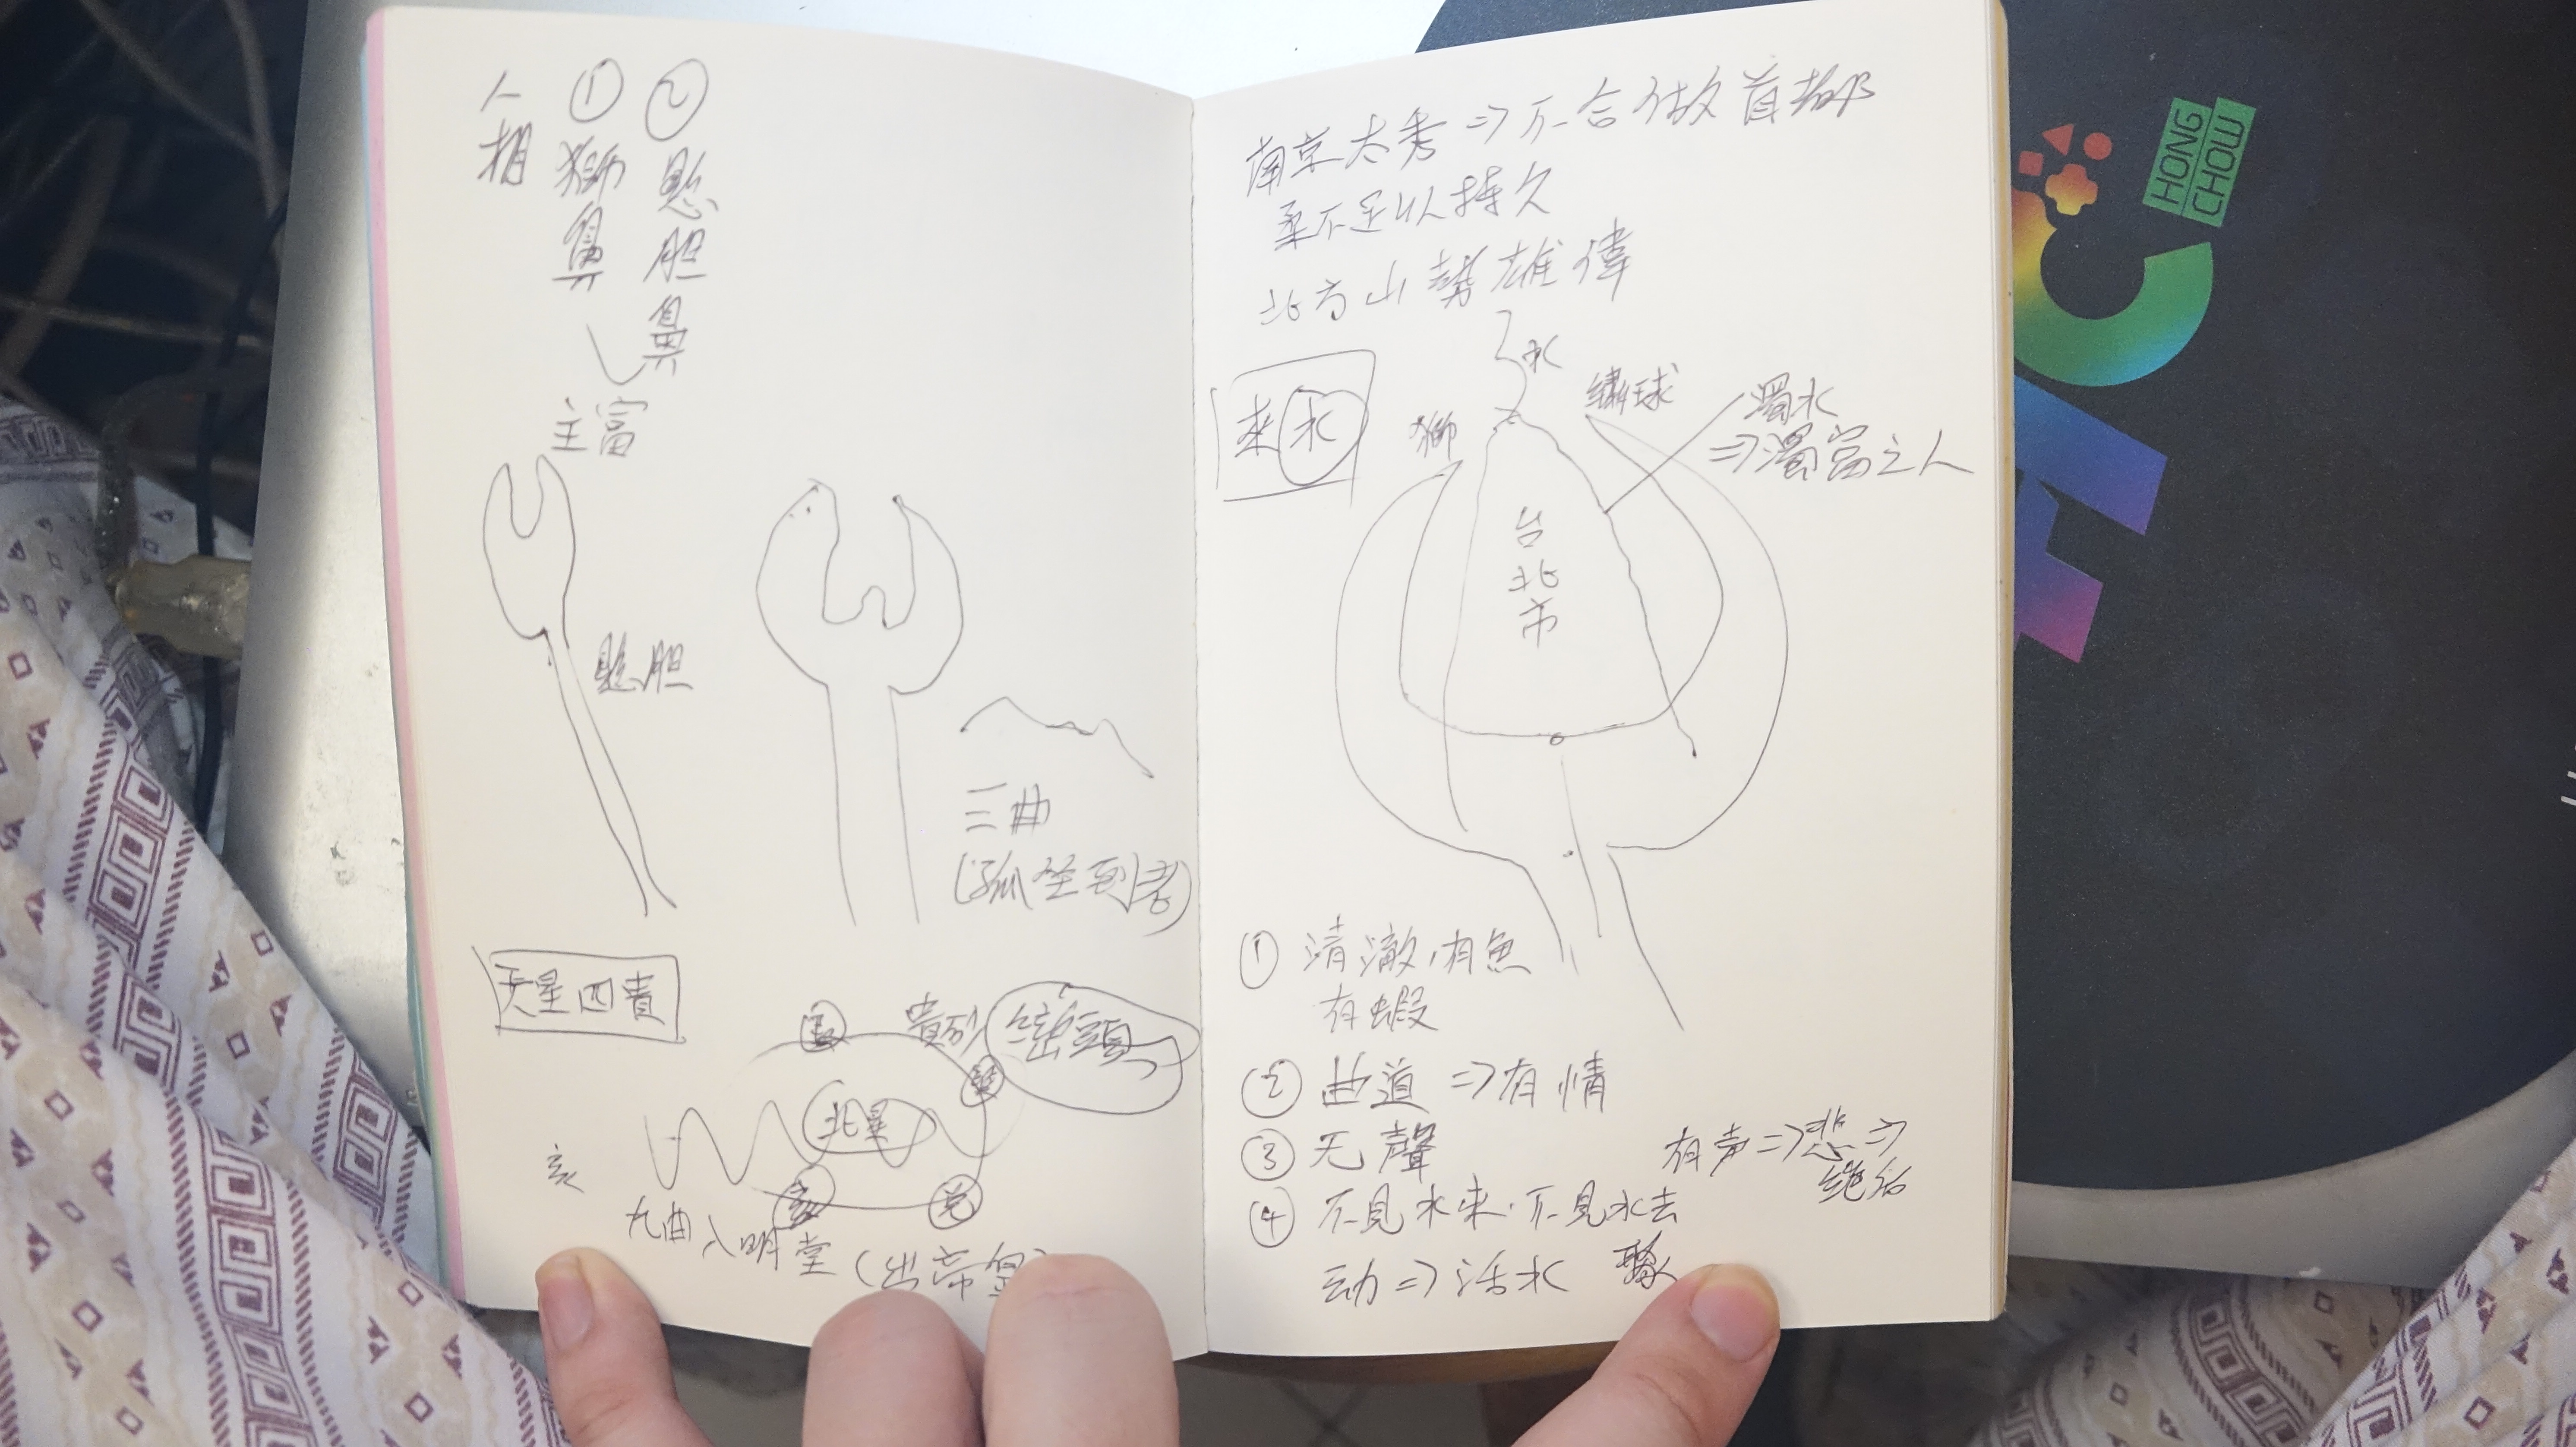 人相
①獅鼻
②懸胆鼻
主富
懸胆
三曲
(孤坐到老)
天星四貴
貴砂
巒頭
北星
亥
九曲入明堂(出帝皇)
南京太秀⇒不合做首都
柔不足以持久
北方山勢雄偉
來水
水
獅
繡球
濁水
⇒濁富之人
台北市
①清澈,有魚
有蝦
②曲道⇒有情
③无聲
有声⇒悲⇒
④不見水来.不見水去
动⇒活水
聚
HONG
CHOW